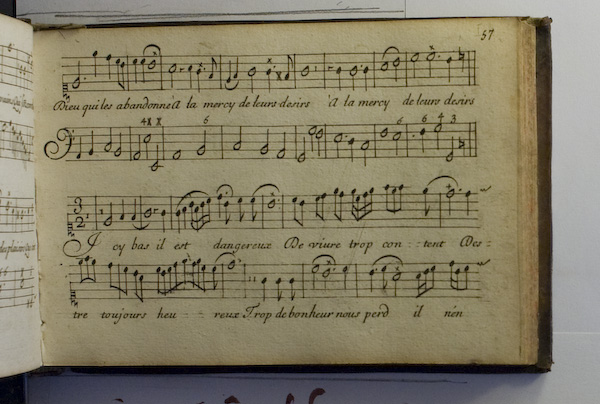 57
Dieu qui les abandonne A la mercy de leurs desirs A la mercy de leurs desirs
4x x 6 6 6 4 3
3
2
Icy bas il est dangereux De vivre trop con - - tent Des -
tre toujours heu - - reux Trop de bonheur nous perd il nén